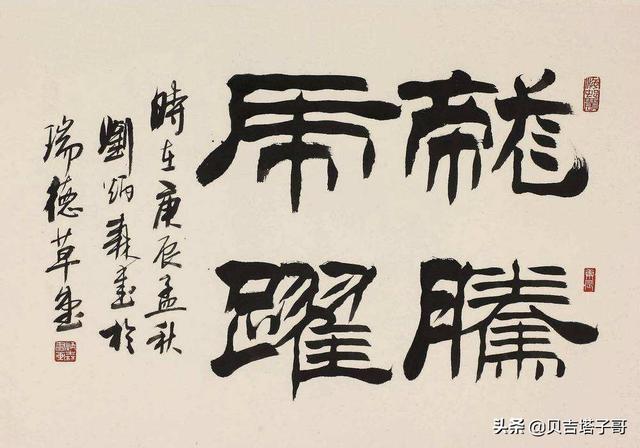 龍騰
虎躍
時在庚辰孟秋
劉炳森書於
瑞德草堂
头条 @贝吉塔子哥